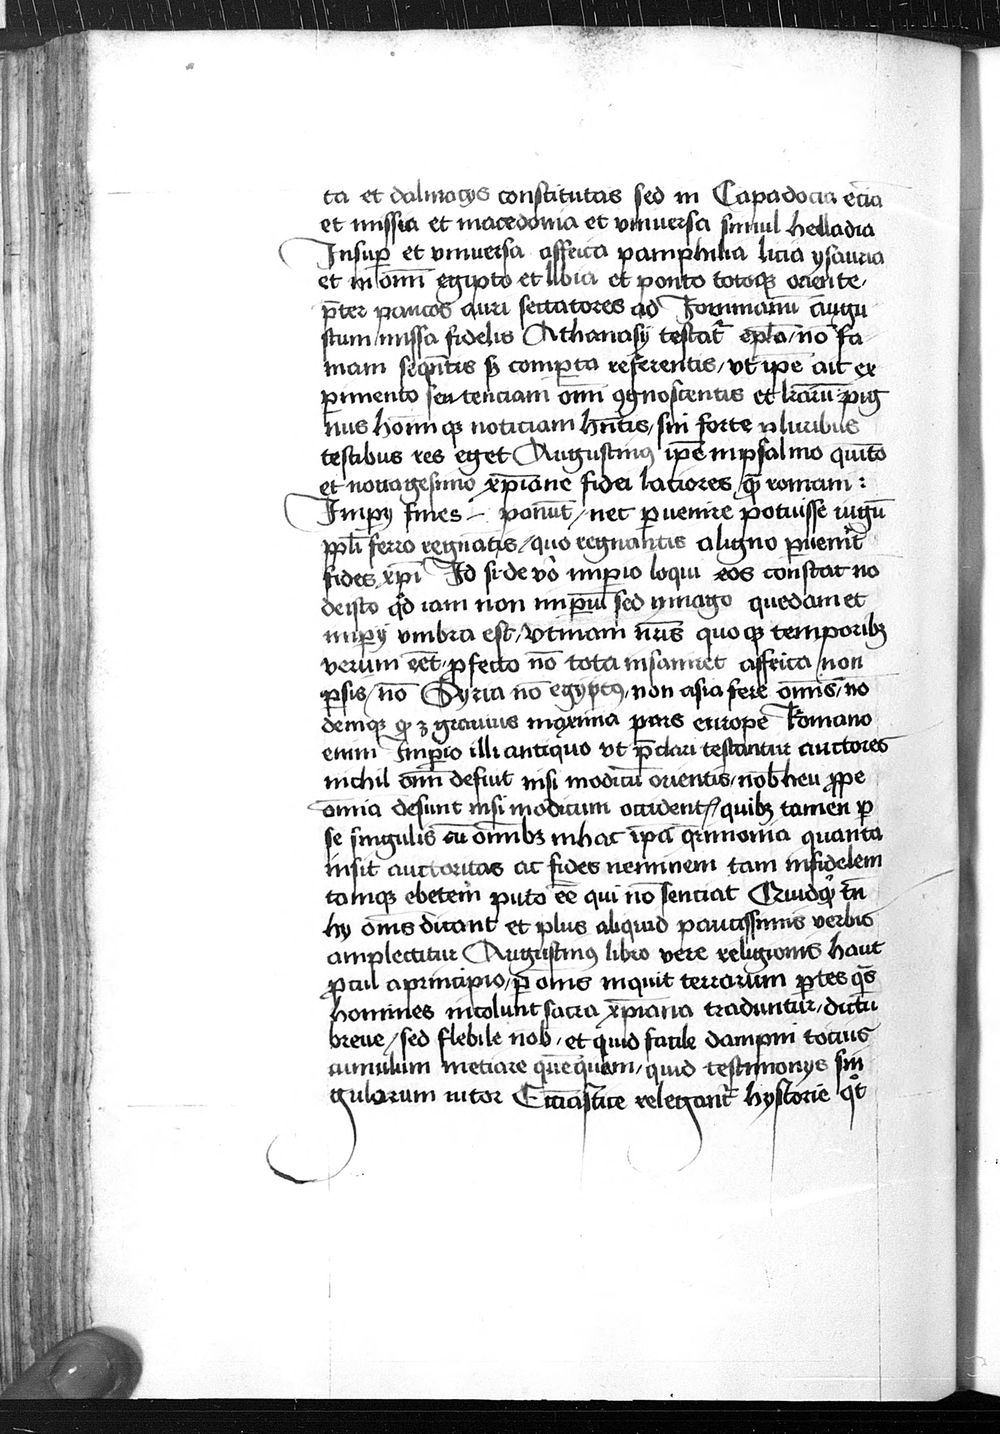 ta et dalmacijs constitutas sed in Capadocia eciā
et missia et macedonia et vniuersa simul helladia
Insup̄ et vniuersa affrica pamphilia licia ysauria
et in om̄i egypto et libia et ponto totoq; oriente /
p̄ter paucos auri sectatores ad Iouinianū augu
stum / missa fidelis Athanasij testat᷑ ep̄la / nō fa
mam seqn̄tis sꝫ comperta referentis / vt ip̄e ait ex
ꝑimento sententiam om̄i ꝯgnoscentis et lr̄arū pig
nus homīq; noticiam hn̄tis / sin forte pluribus
testibus res eget Augustinus ip̄e in psalmo quīto
et nonagesimo xp̄iane fidei laciores / q̄ romani :
Impij fines – ponūt / nec ꝑuenire potuisse iugū
pp̄li ferro regnātis / quo regnantis a ligno ꝑuenit
fides xp̄i Id si de vo᷑ imperio loqui eos constat nō
de isto qd̄ iam non imp̄iū sed ymago quedam et
imperij vmbra est / vtinam nr̄is quoq; temporibꝫ
verum eēt / ꝓfecto nō tota insaniret affrica / non
ꝑsis / nō Syria nō egyptus / non asia fere om̄is / nō
demq; qꝫ grauius maxima pars europe Romano
enim Imperio illi antiquo vt p̄clari testantur auctores
nichil om̄i defuit nisi modicū orientis / nob heu ꝓpe
omnia desunt nisi modicum occident / quibꝫ tamen ꝑ
se singulis cū om̄ibꝫ in hac ip̄a qrimonia quanta
insit auctoritas ac fides neminem tam infidelem
tamq; ebetem puto eē qui nō senciat Quidqd tn̄
hij om̄is dicant et plus aliquid paucissimis verbis
amplectitur Augustinus libro vere religionis haut
ꝓcul a principio / ꝑ om̄is inquit terrarum ꝑtes q̄s
homines incolunt sacra xp̄iana traduntur / dictū
breue / sed flebile nob / et quid facile dampni tocius
cumulum metiare quēquem / quid testimonijs sin
gulorum vitor Ecciastice relegant᷑ hystorie qt